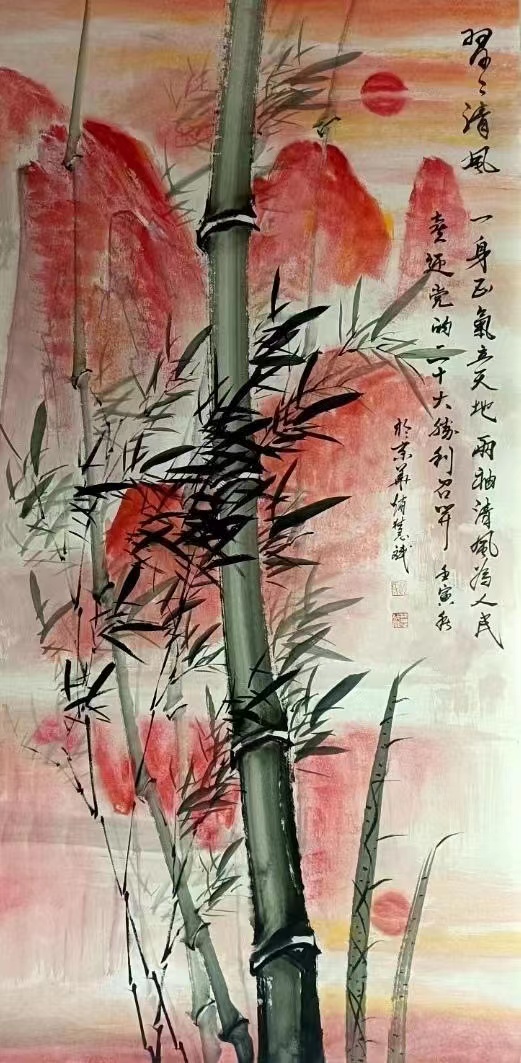 翠々清風
一身正氣立天地兩袖清風為人民
喜迎党的二十大勝利召开 壬寅秋
於京華